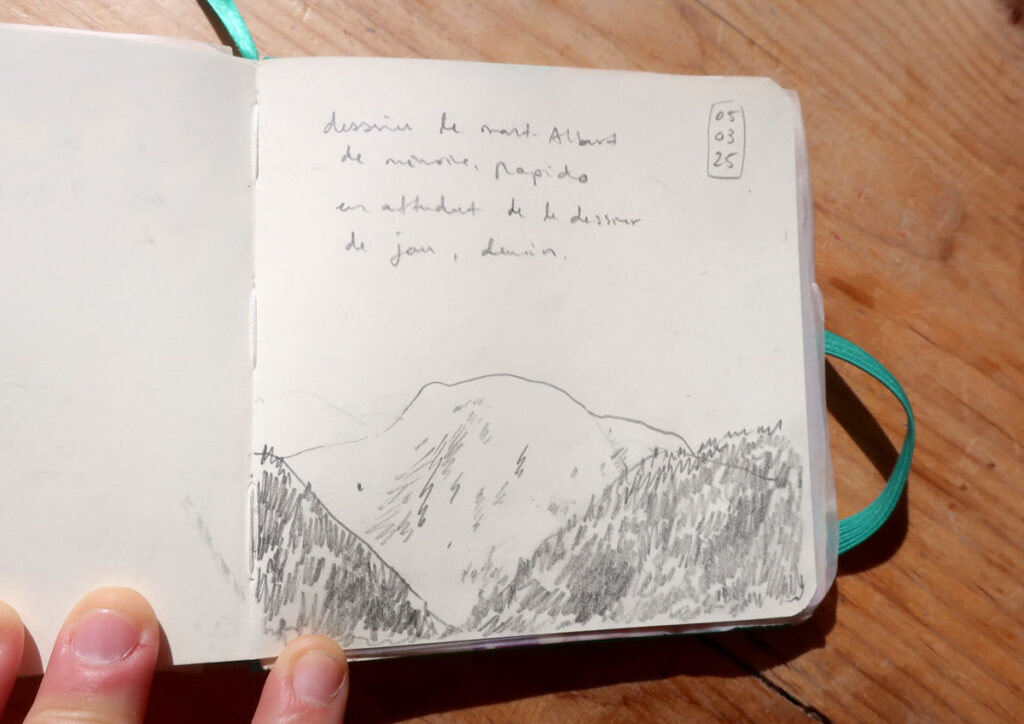 dessiner le mont-Albert
de mémoire, rapido
en attendant de le dessiner
de jour, demain.
05
03
25